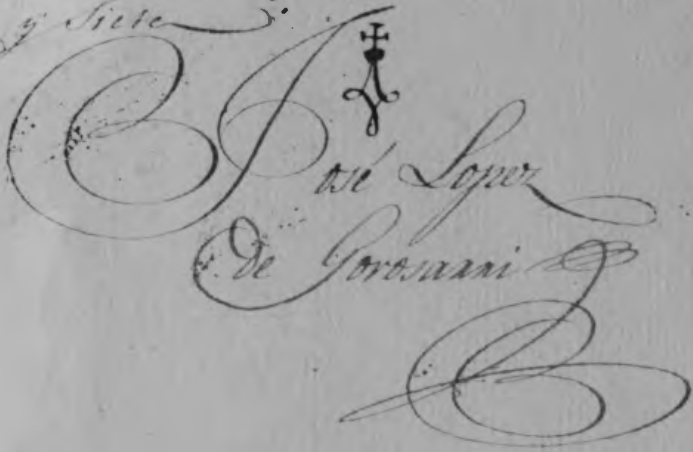 y Siete
José Lopez
de Gorosarri